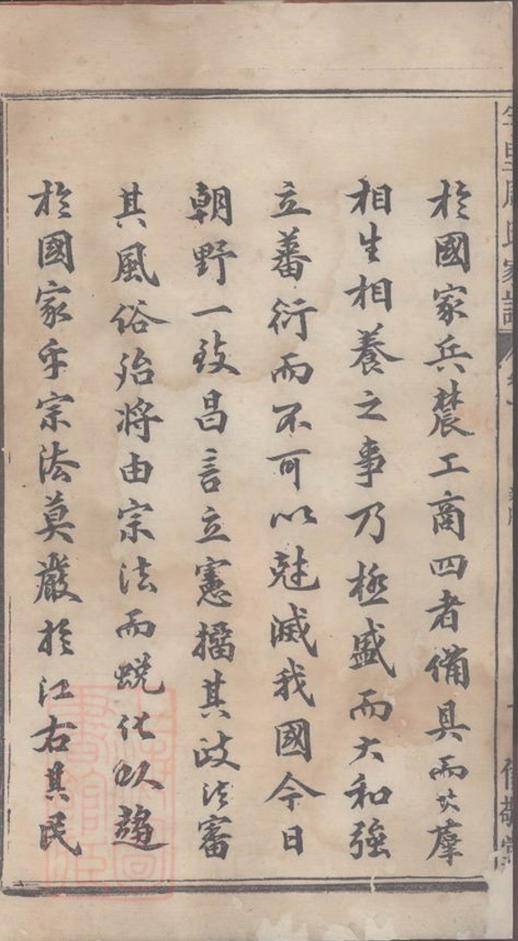 於國家兵農工商四者備具而其羣
相生相養之事乃極盛而大和強
立蕃衍而不可以尅滅我國今日
朝野一致昌言立憲播其政法審
其風俗殆將由宗法而蛻化以趨
於國家乎宗法莫嚴於江右其民